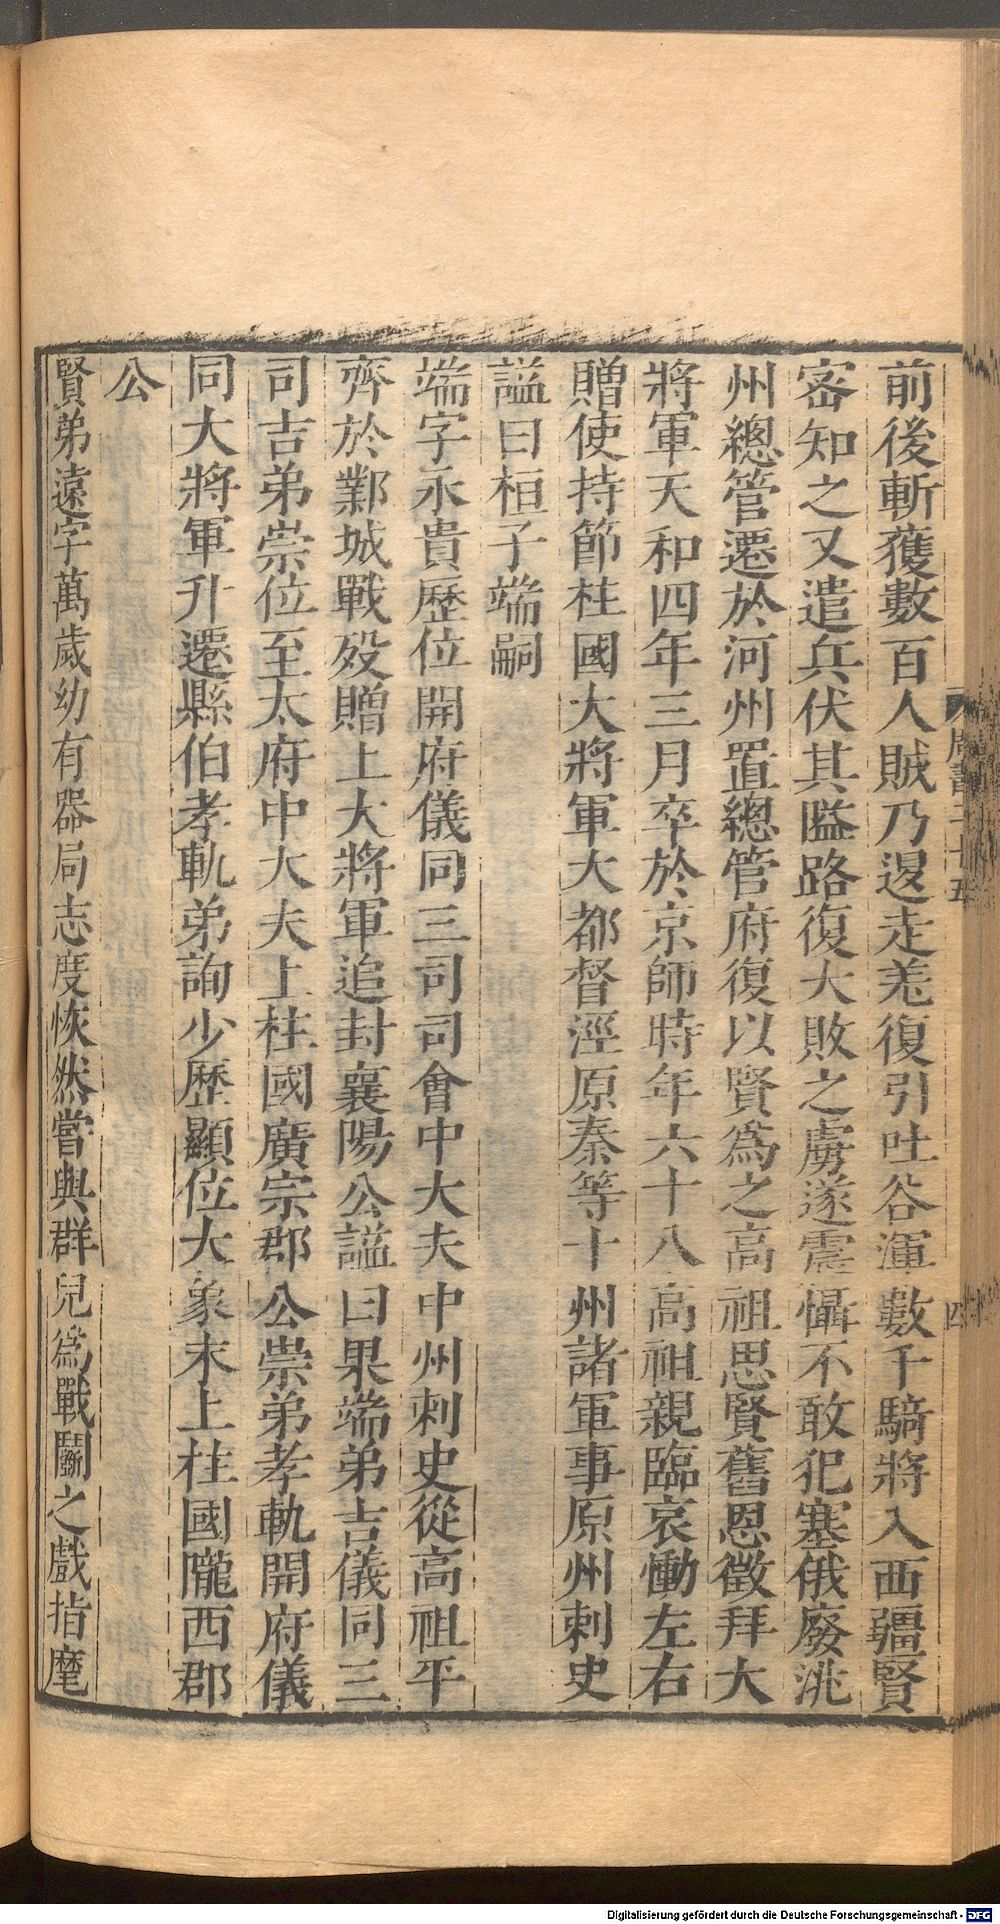 前後斬獲數百人賊乃退走羌復引吐谷渾數千騎將入西疆賢
密知之又遣兵伏其隘路復大敗之虜遂震懾不敢犯塞俄廢洮
州總管遷於河州置總管府復以賢爲之高祖思賢舊恩徵拜大
將軍天和四年三月卒於京師時年六十八高祖親臨哀慟左右
贈使持節柱國大將軍大都督涇原秦等十州諸軍事原州刺史
謚曰桓子端嗣
端字永貴歷位開府儀同三司司會中大夫中州刺史從高祖平
齊於鄴城戰歿贈上大將軍追封襄陽公謚曰果端弟吉儀同三
司吉弟崇位至太府中大夫上柱國廣宗郡公崇弟孝軌開府儀
同大將軍升遷縣伯孝軌弟詢少歷顯位大象末上柱國隴西郡
公
賢弟遠字萬歲幼有器局志度恢然嘗與群兒爲戰鬬之戲指麾
周書二十五
四
Digitalisierung gefördert durch die Deutsche Forschungsgemeinschaft - DFG